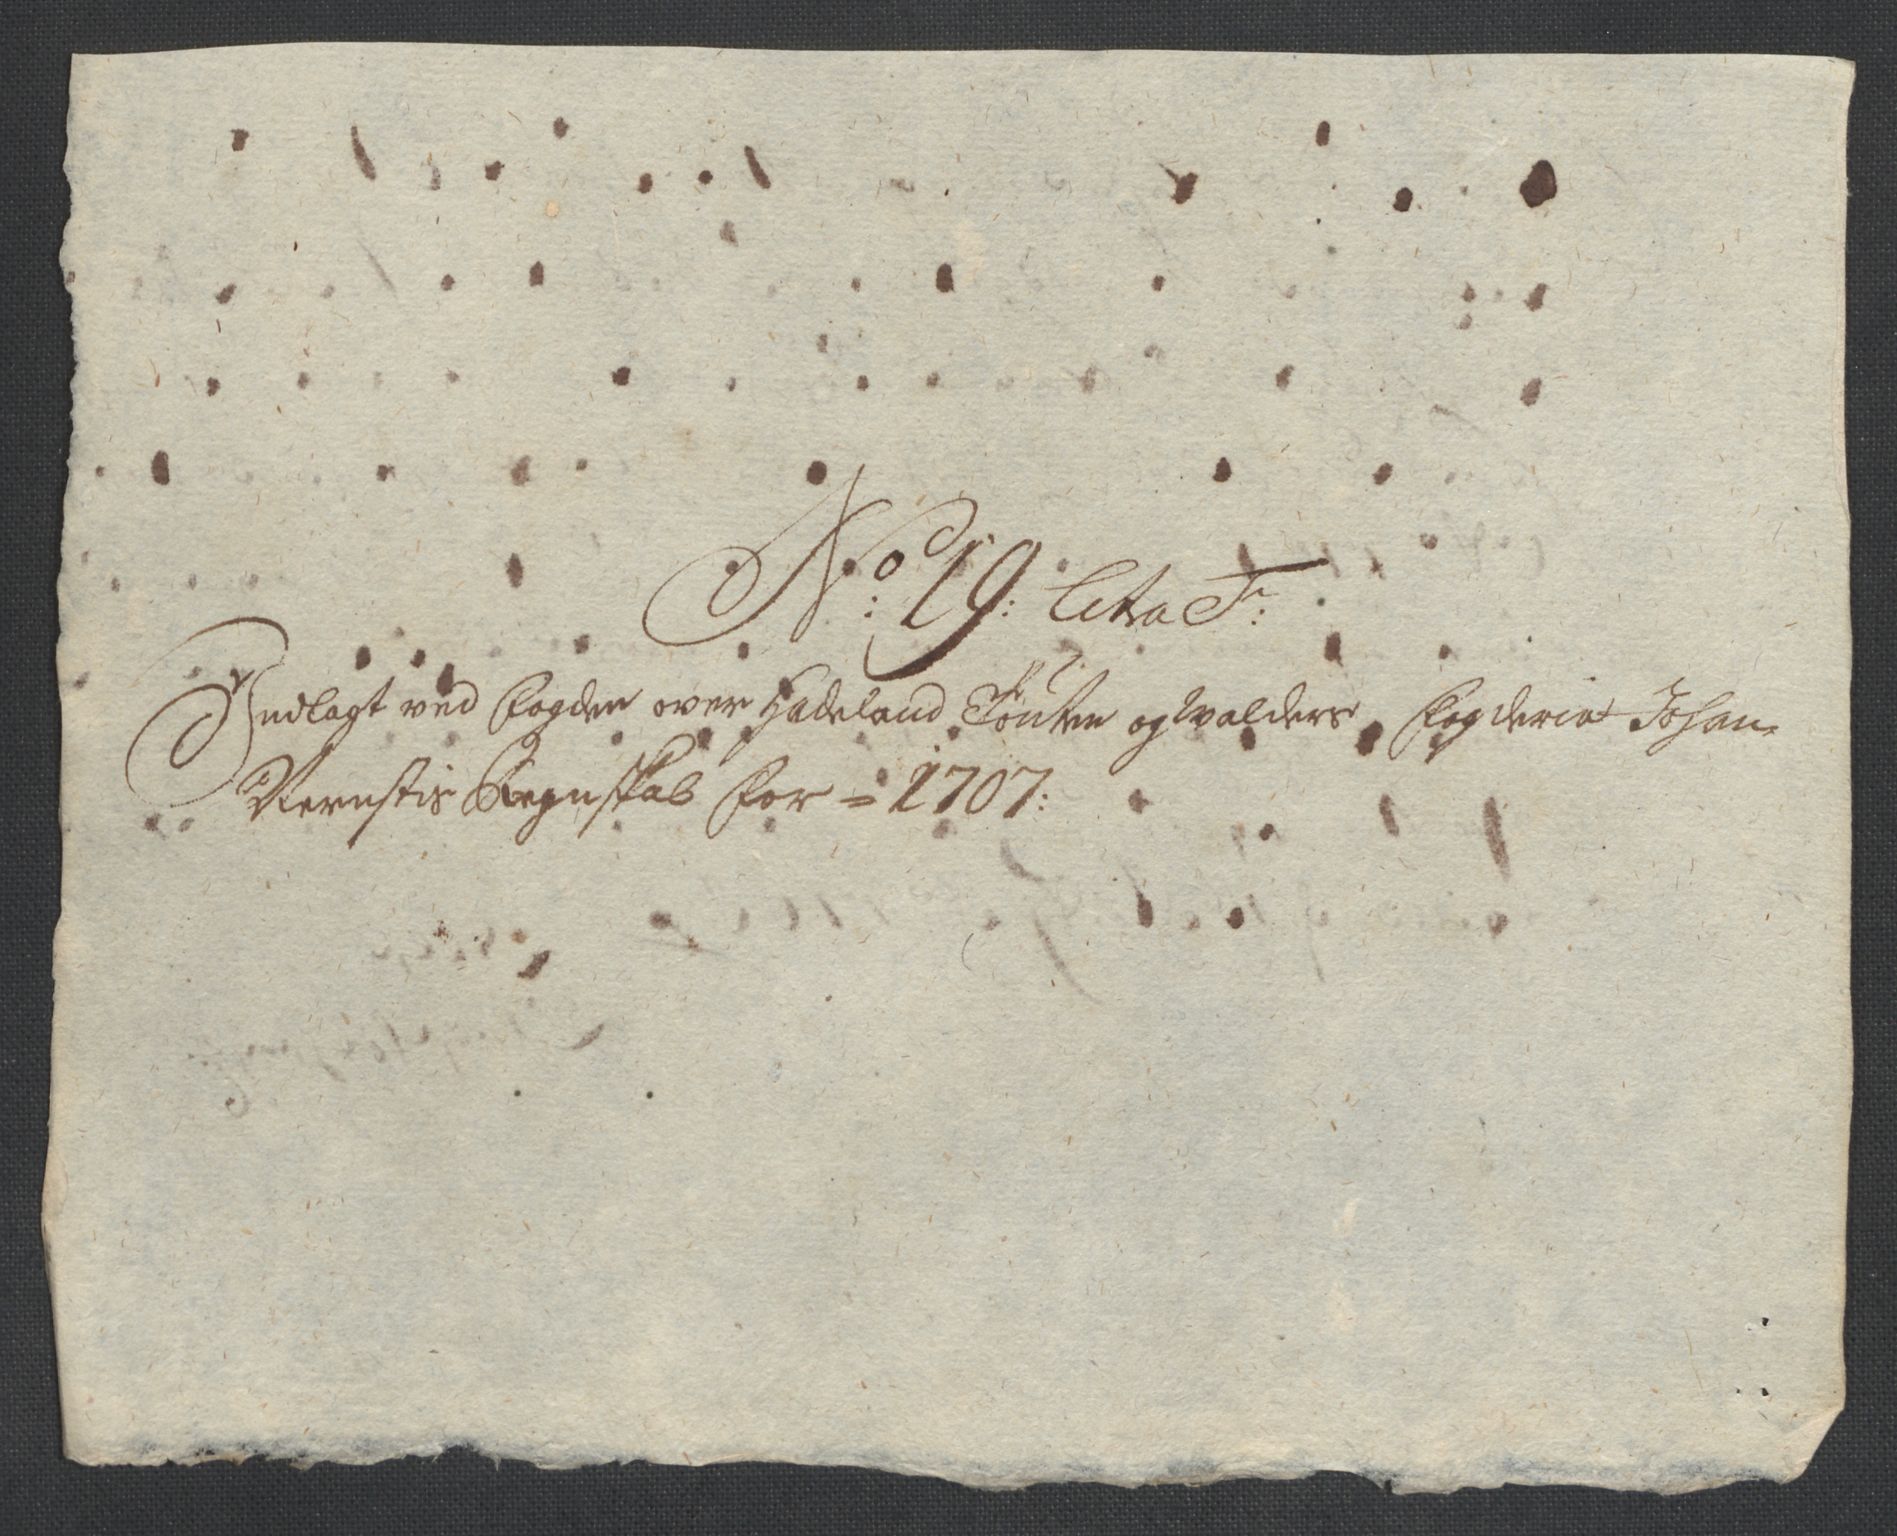 No: 19: Litra F:
Indlagt ved Fogden over Hadeland Touten og Walders Fogderie Johan
Vernstis Regnskab for = 1707: